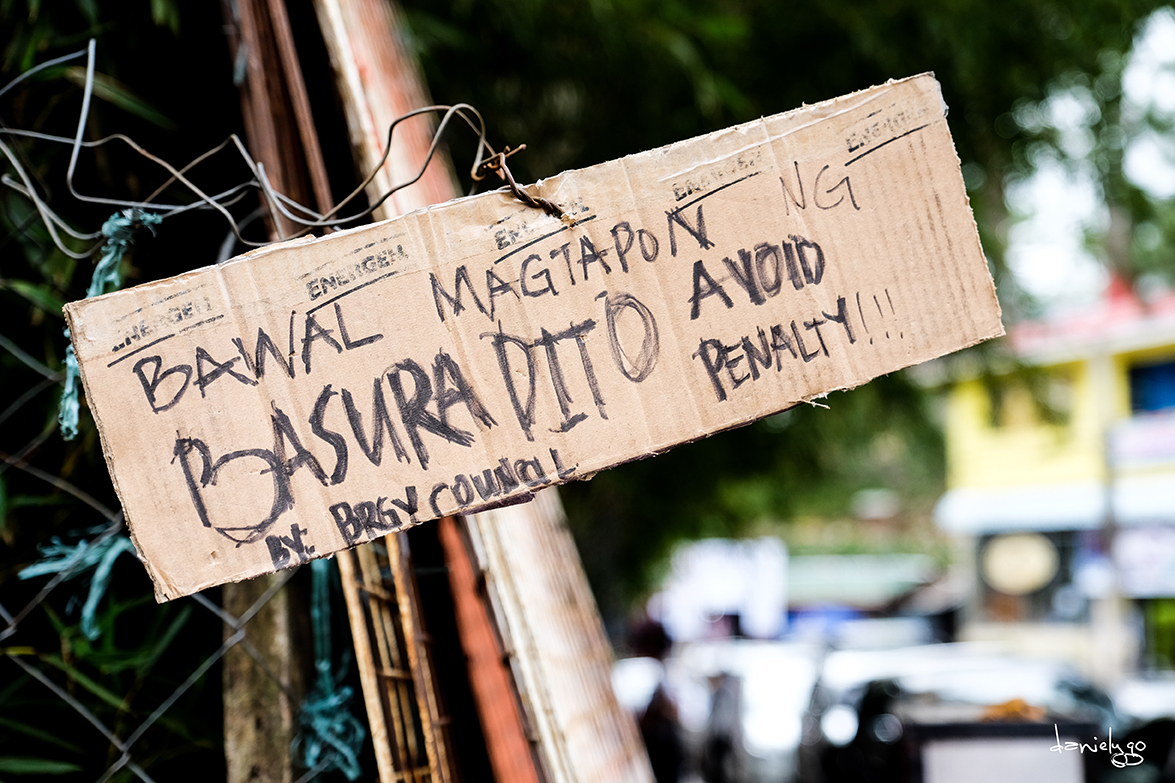 ENERGEN ENERGEN ENERGEN ENERGEN
BAWAL MAGTAPON NG
BASURA DITO AVOID
PENALTY!!!
BY: BRGY COUNCIL
danielygo